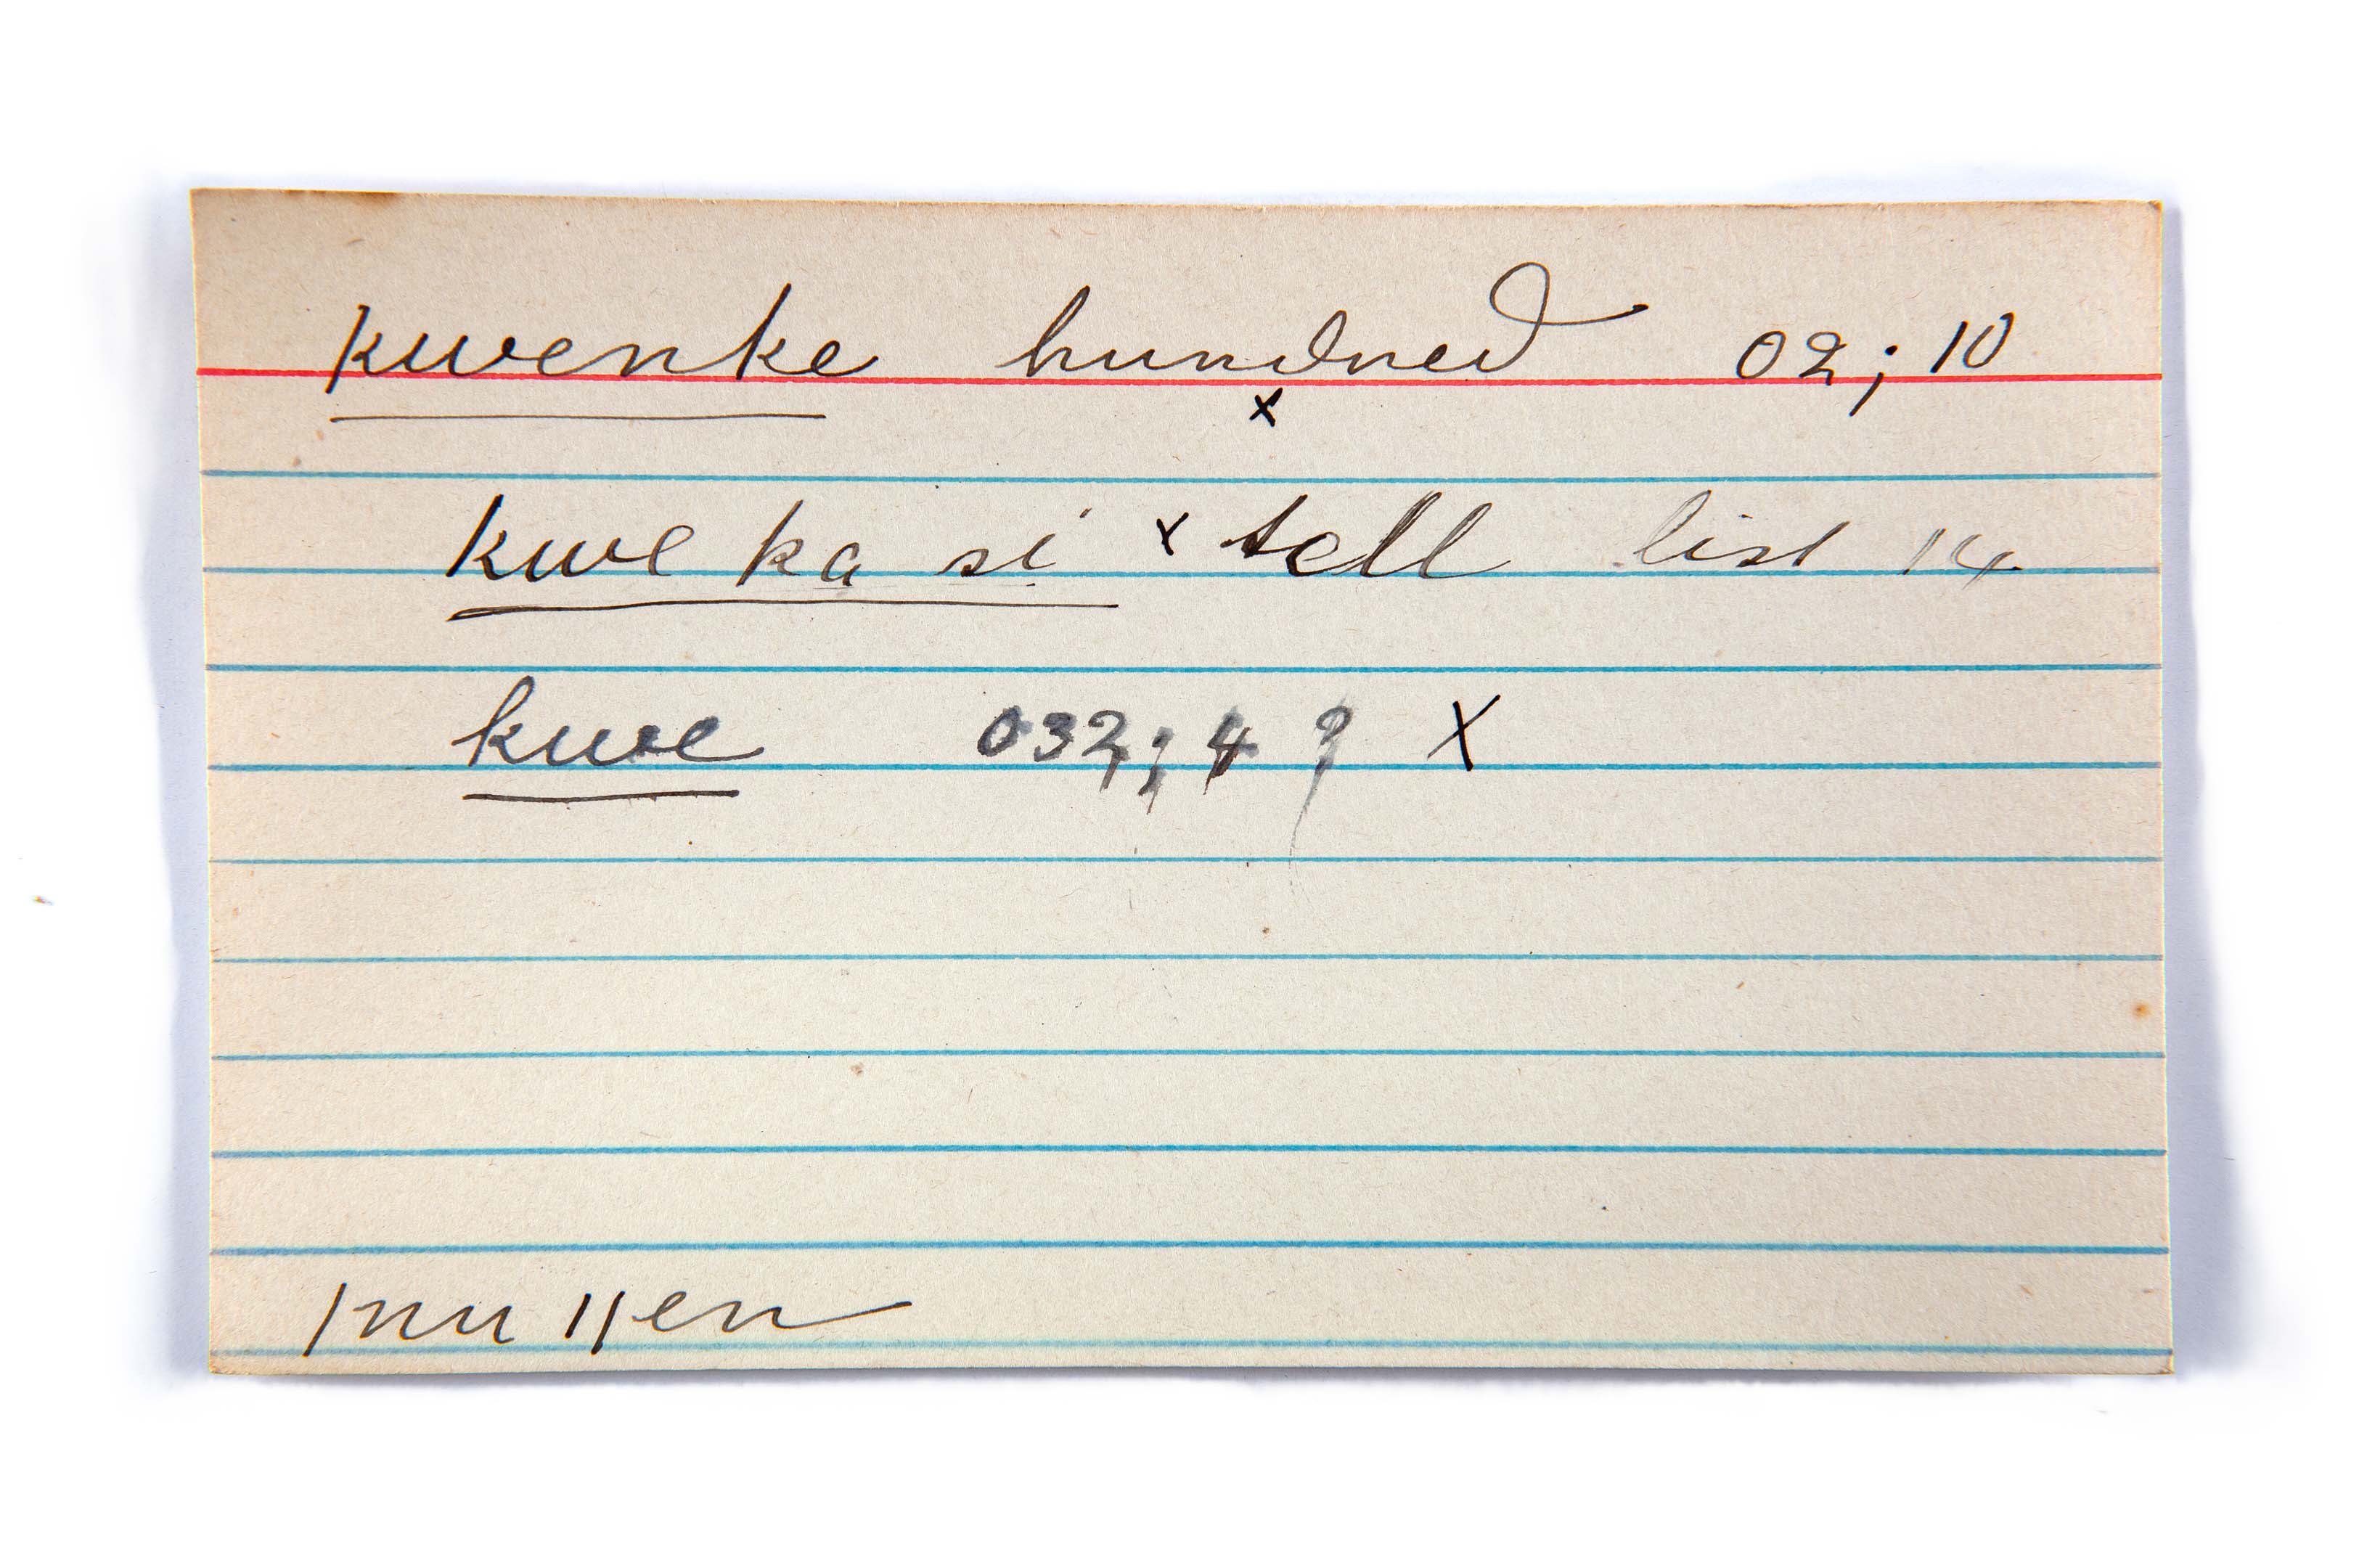 kwenke hundred 02; 10
x
kwe ka si x tell list 14
kwe 032; 4 ? X